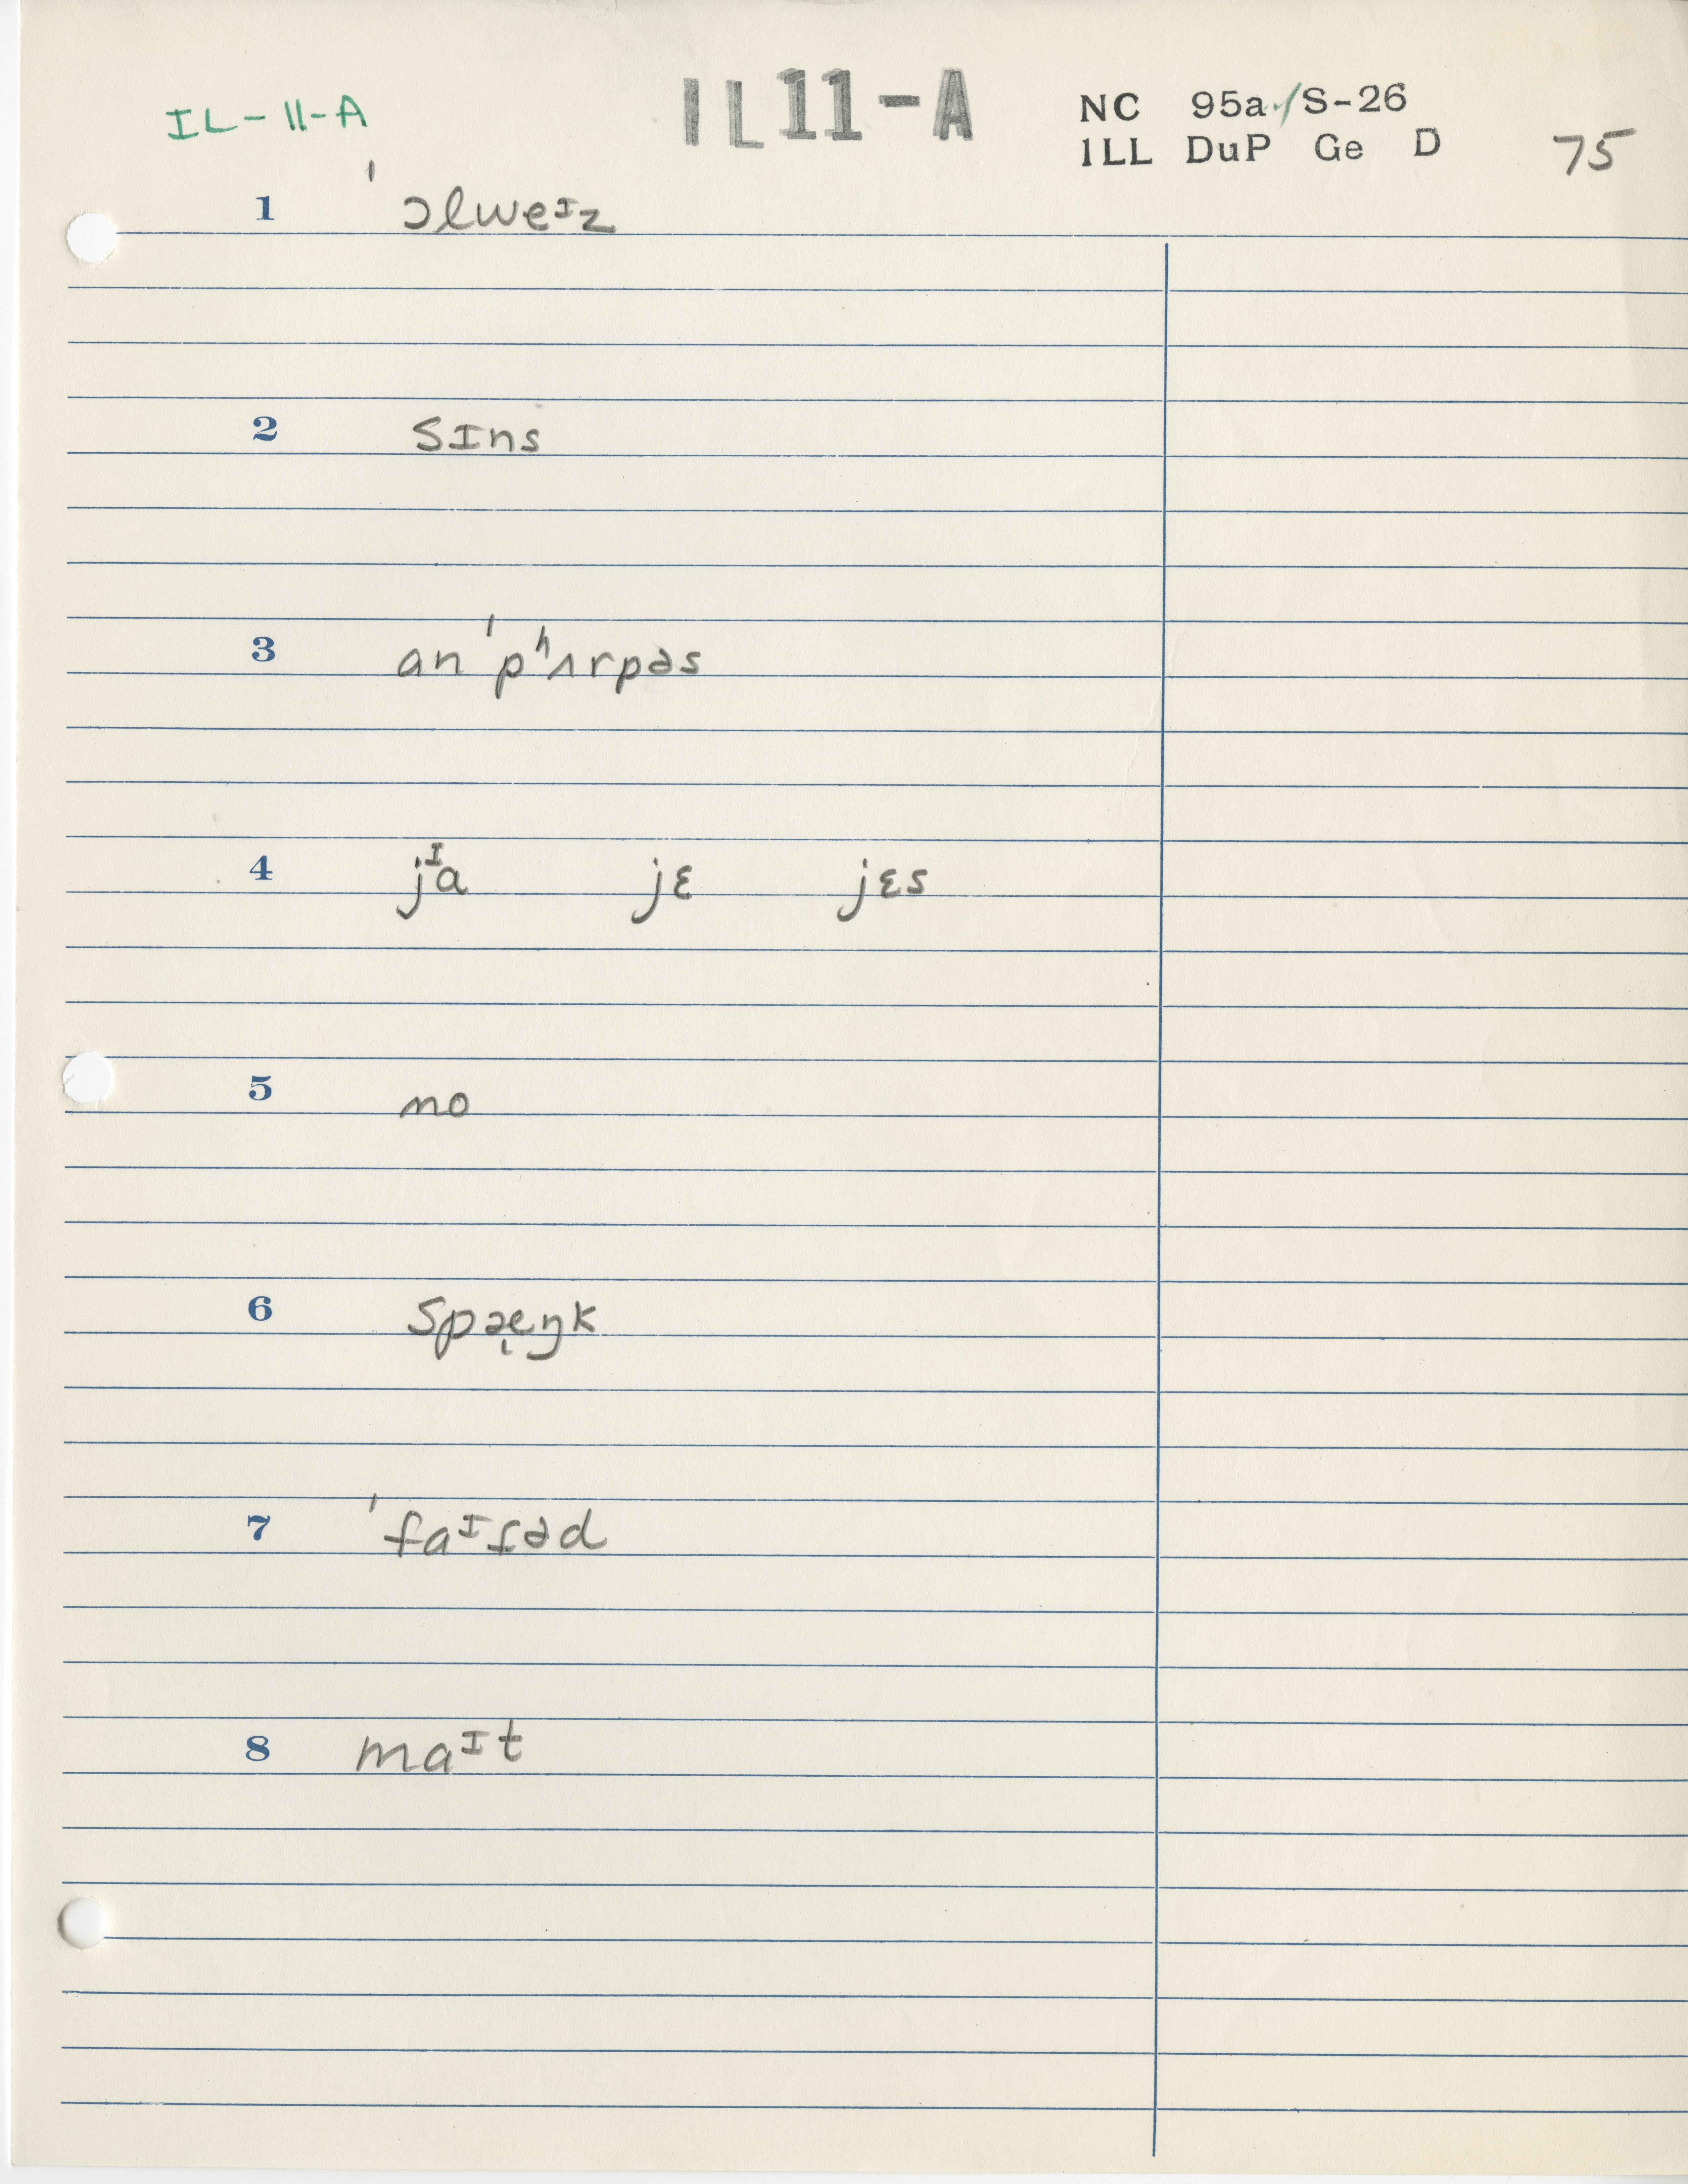 IL-11-A IL11-A NC 95a/S-26
ILL DuP Ge D 75
1 ˈɔlweᶦz
2 sɪns
3 anˈpʰʌrpəs
4 jᶦa jɛ jɛs
5 no
6 spæ̨ŋk
7 ˈfaᶦɾəd
8 maᶦt